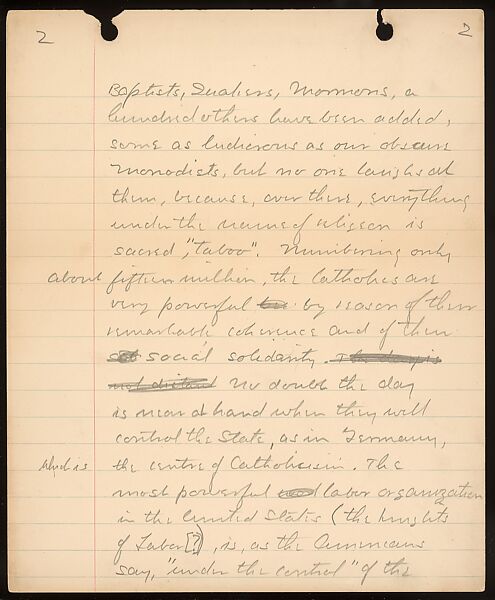 2 2
Baptists, Quakers, Mormons, a
hundred others have been added,
some as ludicrous as our obscure
Monodists, but no one laughs at
them, because, over there, everything
under the name of religion is
sacred, "taboo". Numbering only
about fifteen million, the Catholics are
very powerful by reason of their
remarkable coherence and of their
social solidarity. The day is
not distant No doubt the day
is near at hand when they will
control the State, as in Germany,
which is the centre of Catholicism. The
most powerful labor organization
in the United States (the Knights
of Labor[?]), is, as the Americans
say, "under the control" of the